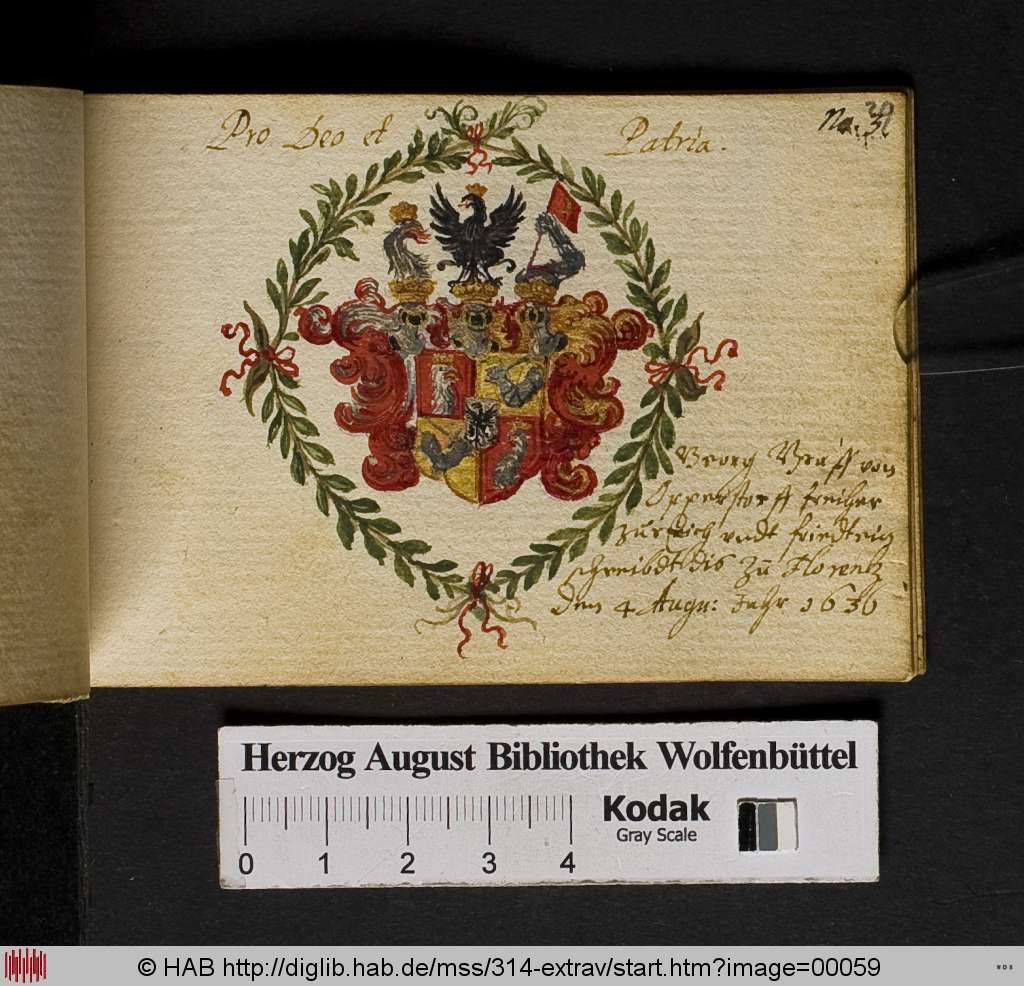 Pro Deo et Patria.
No. 31
Georg Graff von
Opperstorff freiher
zu Eich undt friedtein
schreibdt dis zu Florentz
den 4 Augu: Jahr 1636
Herzog August Bibliothek Wolfenbüttel
Kodak
Gray Scale
0 1 2 3 4
© HAB http://diglib.hab.de/mss/314-extrav/start.htm?image=00059
WDB